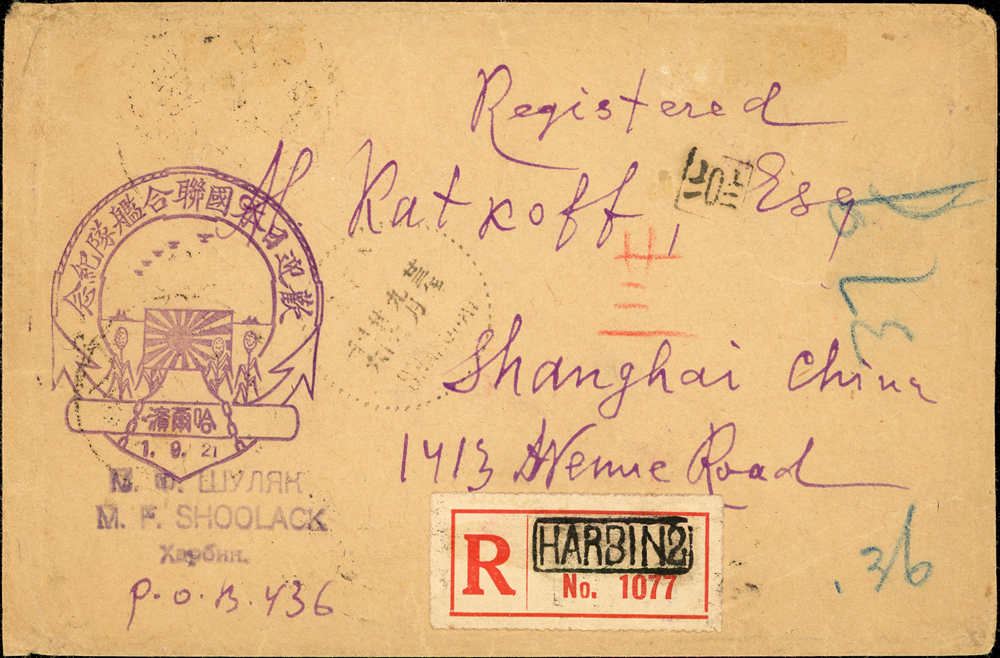 Registered
Katkoff, Esq
Shanghai China
1413 Avenue Road
歡迎日本國聯合艦隊紀念
哈爾濱
1. 9. 21
М. Ф. ШУЛЯК
M. F. SHOOLACK
Харбин.
P.O.B. 436
R
HARBIN 2
No. 1077
.36